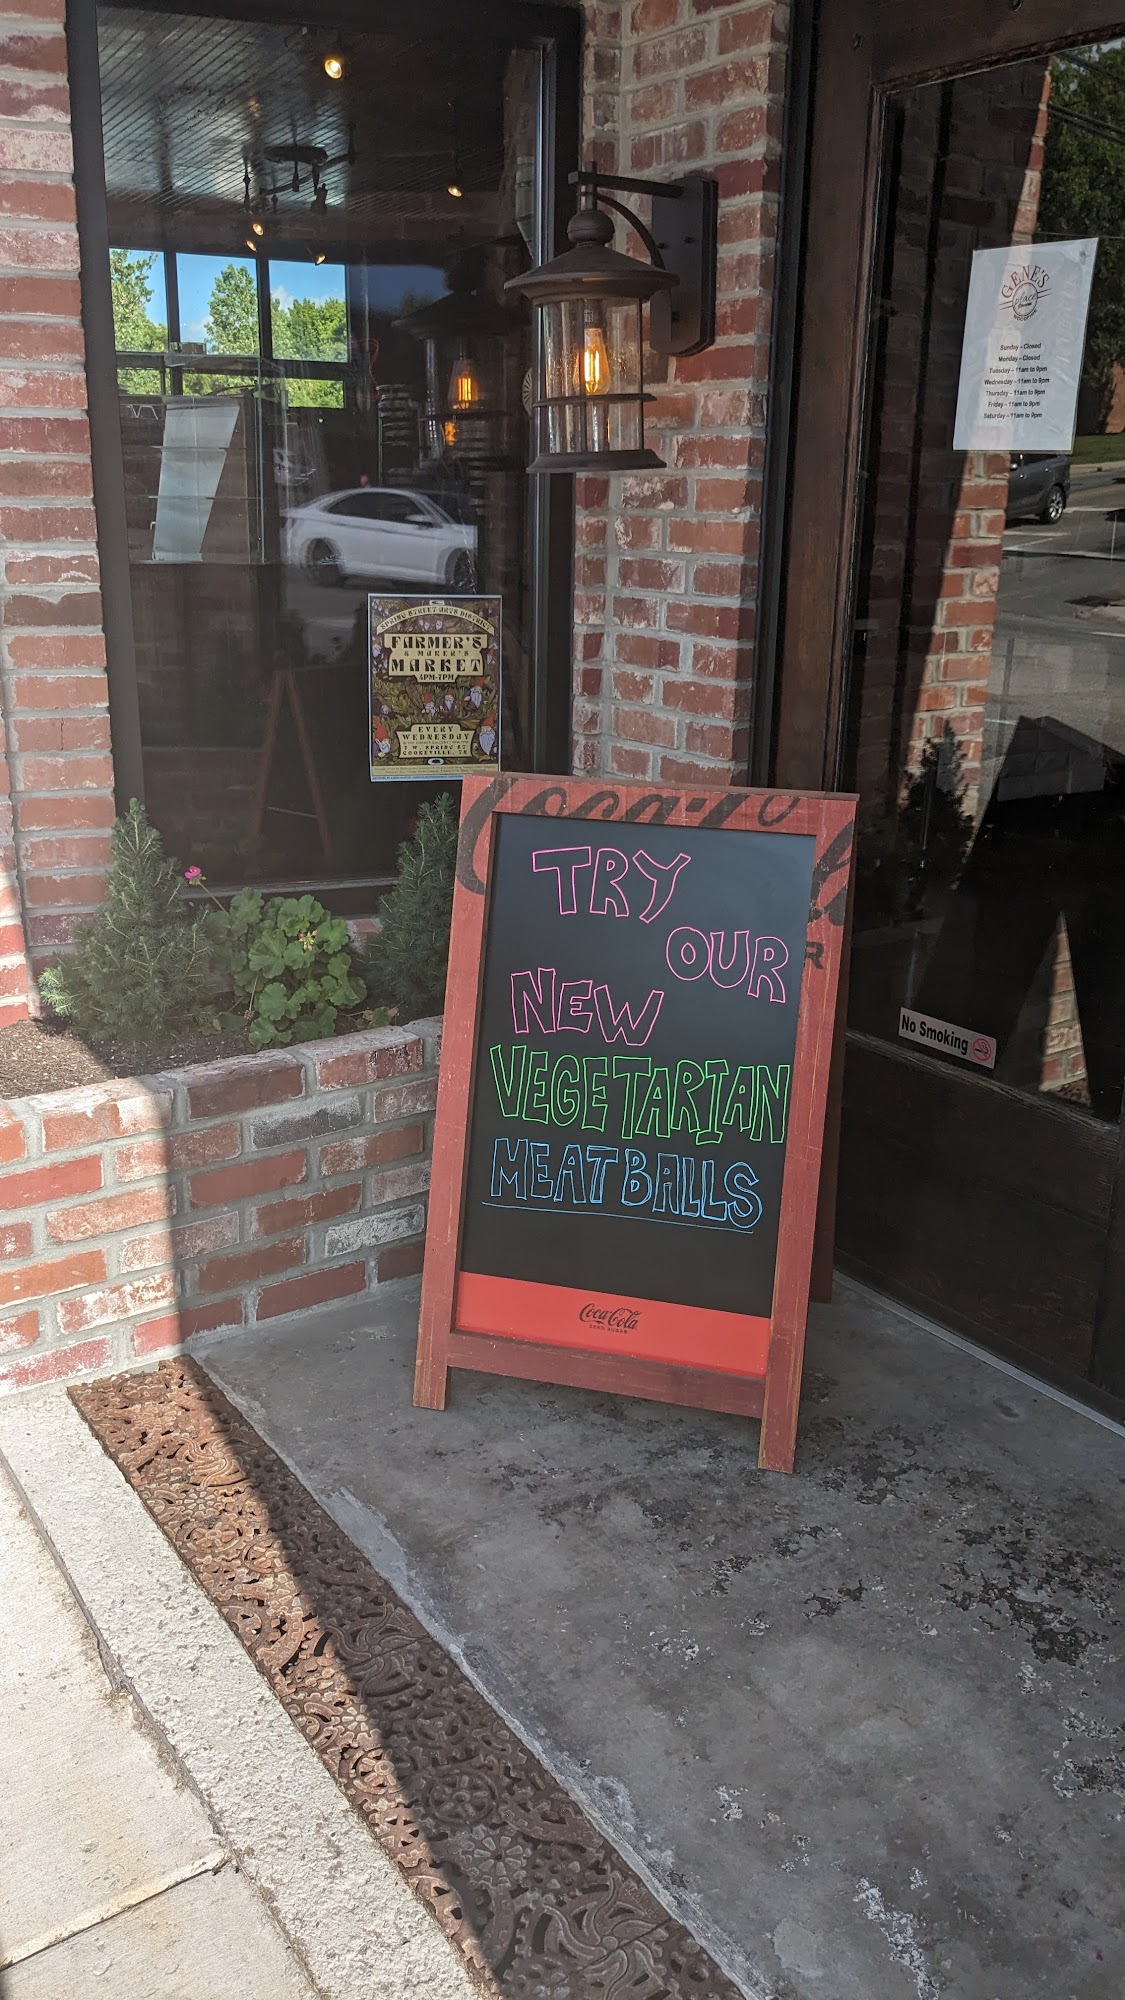 GENE'S
Place
Sunday – Closed
Monday – Closed
Tuesday – 11am to 9pm
Wednesday – 11am to 9pm
Thursday – 11am to 9pm
Friday – 11am to 9pm
Saturday – 11am to 9pm
SPRING STREET ARTS DISTRICT
FARMER'S
& MAKER'S
MARKET
4PM-7PM
EVERY
WEDNESDAY
7 W. SPRING ST
COOKEVILLE, TN
Coca-Cola
TRY
OUR
NEW
VEGETARIAN
MEATBALLS
Coca-Cola
ZERO SUGAR
No Smoking